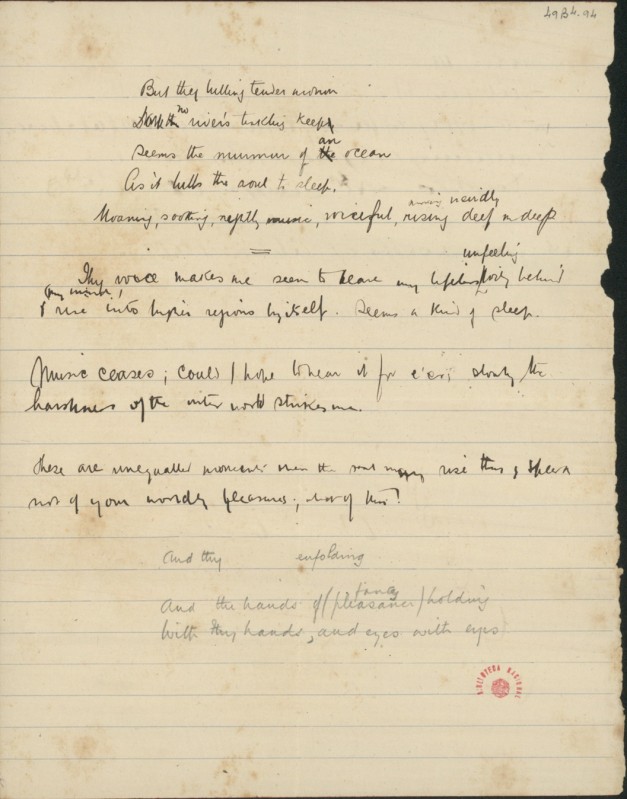 49B4-94
But thy lulling tender motion
no
river's trickling keep
an
Seems the murmur of the ocean
As it lulls the soul to sleep.
rising weirdly
Moaning, soothing, music, voiceful, rising deep on deep
unfeeling
Thy voice makes me seem to leave my lifeless body behind
(my mind!)
& rise into higher regions by itself. Seems a kind of sleep.
Music ceases; could I hope to hear it for e'er; slowly the
harshness of the outer world strikes me.
These are unequalled moments when the soul may rise thus & speak
not of your worldly pleasures; what of this?
And thy enfolding
fancy
And the hands of (pleasance) holding
With thy hands, and eyes with eyes
BIBLIOTECA NACIONAL